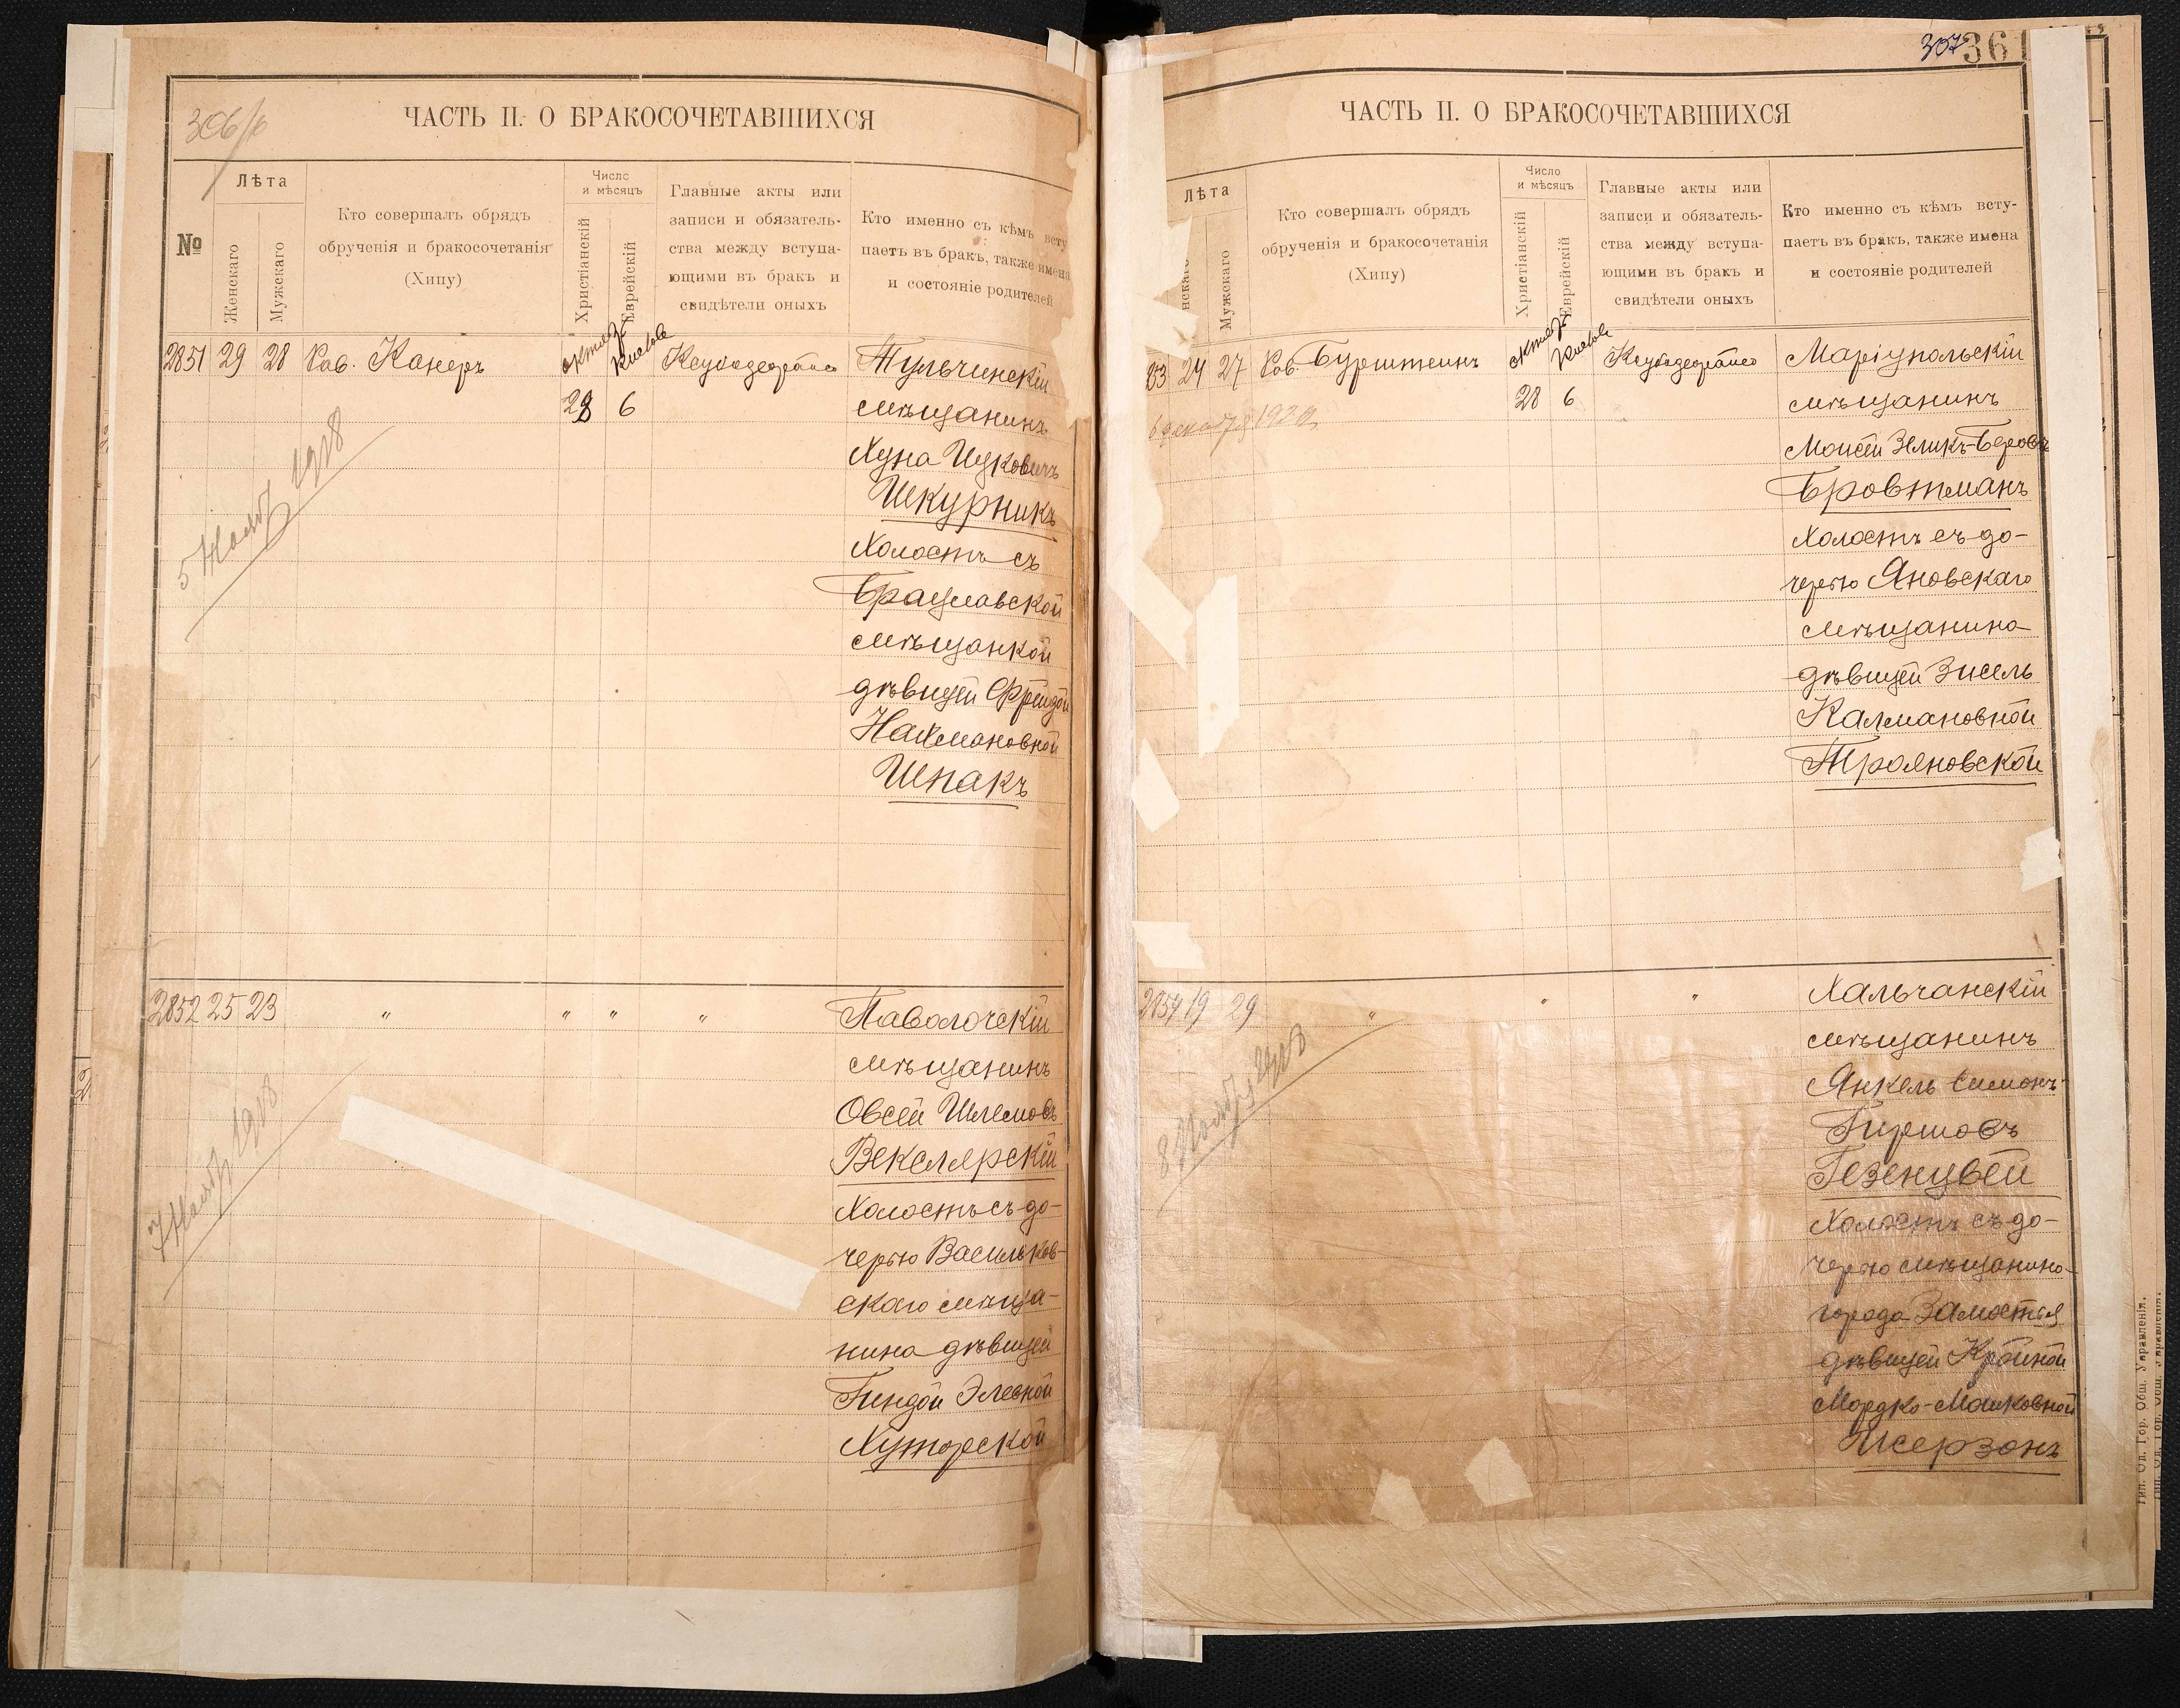 306/б
ЧАСТЬ II. О БРАКОСОЧЕТАВШИХСЯ
№
Лѣта
Женскаго
Мужскаго
Кто совершалъ обрядъ
обрученія и бракосочетанія
(Хипу)
Число
и мѣсяцъ
Христіанскій
Еврейскій
Главные акты или
записи и обязатель-
ства между вступа-
ющими въ бракъ и
свидѣтели оныхъ
Кто именно съ кѣмъ всту
паетъ въ бракъ, также имена
и состояніе родителей
2851 29 28 Рав. Канеръ
28 6
Тульчинскій
мѣщанинъ
Хуна Ицковичъ
Шкурникъ
холостъ съ
Брацлавской
мѣщанкой
дѣвицей Фрейдой
Нахмановной
Шпакъ
1918
2852 25 23 " " " "
Паволочскій
мѣщанинъ
Овсей Шлемовъ
Векслярскій
холостъ съ до-
черью Васильков-
скаго мѣща-
нина дѣвицей
Гиндой Элевной
Хуторской
1918
307
361
ЧАСТЬ II. О БРАКОСОЧЕТАВШИХСЯ
Лѣта
нскаго
Мужскаго
Кто совершалъ обрядъ
обрученія и бракосочетанія
(Хипу)
Число
и мѣсяцъ
Христіанскій
Еврейскій
Главные акты или
записи и обязатель-
ства между вступа-
ющими въ бракъ и
свидѣтели оныхъ
Кто именно съ кѣмъ всту-
паетъ въ бракъ, также имена
и состояніе родителей
53 24 27 Рав. Бурштейнъ
28 6
Маріупольскій
мѣщанинъ
Моисей Зеликъ-Беровъ
Бровтманъ
холостъ съ до-
черью Яновскаго
мѣщанина
дѣвицей Зисель
Калмановной
Трояновской
2854 19 29 " " "
Хальчанскій
мѣщанинъ
Янкель Симонъ-
Гиршовъ
Гезенцвей
холостъ съ до-
черью мѣщанина
города Замостья
дѣвицей Кройной
Мордко-Машковной
Исерзонъ
Тип. Од. Гор. Общ. Управленія.